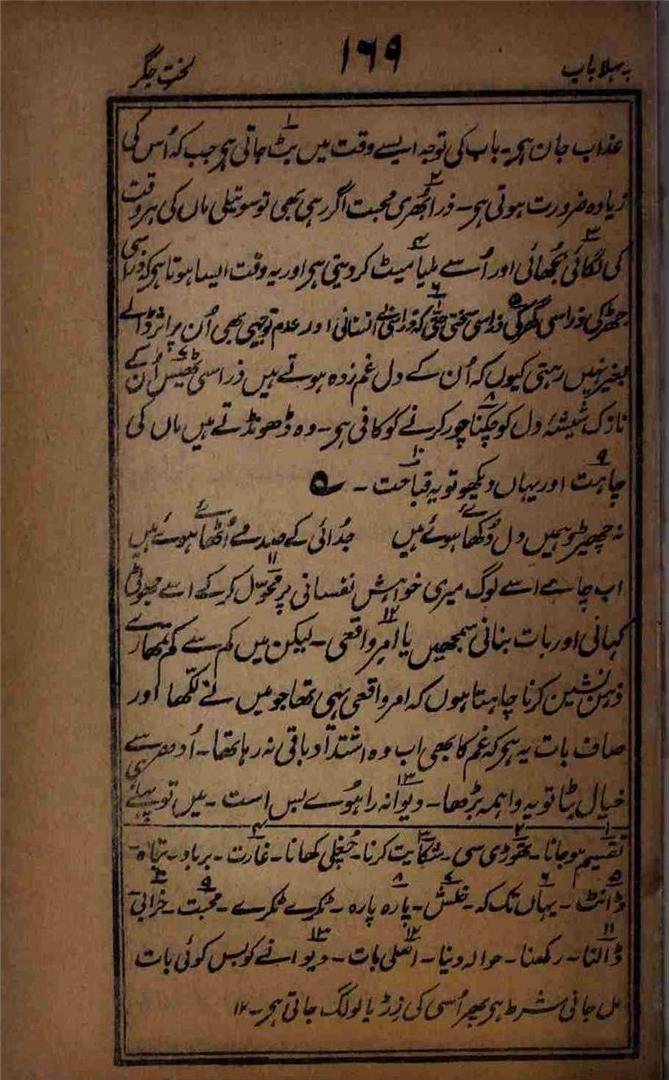 پہلا باب ۱۶۹ لختِ جگر
عذاب جان ہی۔ باپ کی توجہ ایسے وقت میں بٹ جاتی ہی جب کہ اُس کی
زیادہ ضرورت ہوتی ہی۔ ذرا بھری محبت اگر رہی بھی تو سوتیلی ماں کی ہر وقت
کی لگائی بجھائی اور اُسے ملیامیٹ کر دیتی ہی اور یہ وقت ایسا ہوتا ہی کہ ذرا سی
جھڑکی ذرا سی گھرکی ذرا سی سختی حتیٰ کہ ذرا سی بے انسانی اور عدم توجہی بھی اُن پر اثر ڈالے
بغیر نہیں رہتی کیوں کہ اُن کے دل غم زدہ ہوتے ہیں ذرا سی ٹھیس اُن کے
نازک شیشۂ دل کو چکناچور کرنے کو کافی ہی۔ وہ ڈھونڈتے ہیں ماں کی
چاہت اور یہاں دیکھو تو یہ قباحت۔ ؎
نہ چھیڑو ہمیں دل دُکھائے ہوئے ہیں جُدائی کے صدمے اُٹھائے ہوئے ہیں
اب چاہے اسے لوگ میری خواہش نفسانی پر محمول کر کے اسے جھوٹی
کہانی اور بات بنانی سمجھیں یا امرِ واقعی۔ لیکن میں کم سے کم تمھارے
ذہن نشین کرنا چاہتا ہوں کہ امر واقعی یہی تھا جو میں نے لکھا اور
صاف بات یہ ہی کہ غم کا بھی اب وہ اشتداد باقی نہ رہا تھا۔ اُدھر سے
خیال ہٹا تو یہ واہمہ بڑھا۔ دیوانہ را ہوے بس است۔ میں تو پہلے ہی
۱ تقسیم ہو جانا۔ ۲ تھوڑی سی۔ ۳ شکایت کرنا۔ چغلی کھانا۔ ۴ غارت۔ برباد۔ تباہ۔
۵ ڈانٹ۔ ۶ یہاں تک کہ۔ ۷ خلش۔ ۸ پارہ پارہ۔ ٹکڑے ٹکڑے۔ ۹ محبت۔ ۱۰ خرابی
۱۱ ڈالنا۔ رکھنا۔ حوالہ دینا۔ ۱۲ اصلی بات۔ ۱۳ دیوانے کو بس کوئی بات
مل جانی شرط ہی پھر اُسی کی زڑ یا لو لگ جاتی ہی۔ ۱۲